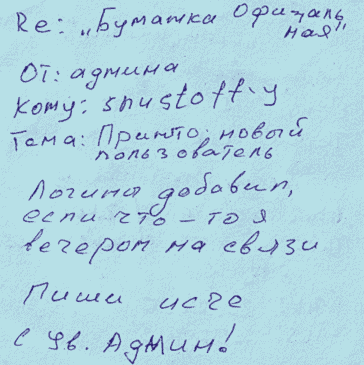 Re: „Бумажка официаль
ная"
От: админа
Кому: snustoff-у
Тема: Принто: новый
пользователь
Логины добавил,
если что-то я
вечером на связи
Пиши исче
С Ув. Админ!